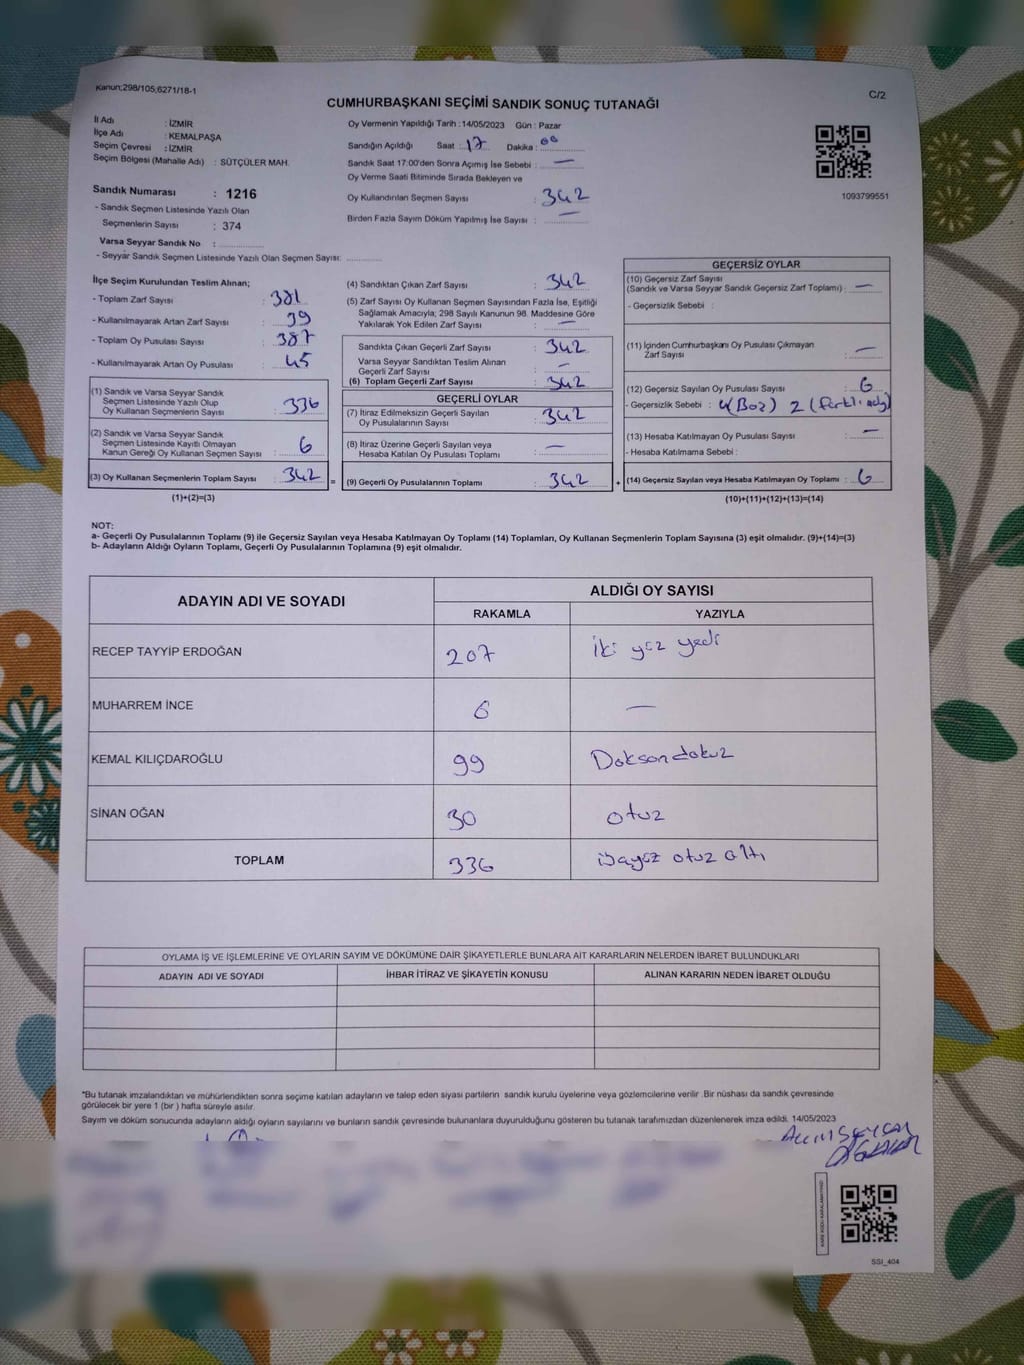 Kanun;298/105;6271/18-1
C/2
CUMHURBAŞKANI SEÇİMİ SANDIK SONUÇ TUTANAĞI
İl Adı : İZMİR
İlçe Adı : KEMALPAŞA
Seçim Çevresi : İZMİR
Seçim Bölgesi (Mahalle Adı) : SÜTÇÜLER MAH.
Sandık Numarası : 1216
- Sandık Seçmen Listesinde Yazılı Olan
Seçmenlerin Sayısı : 374
Varsa Seyyar Sandık No :
- Seyyar Sandık Seçmen Listesinde Yazılı Olan Seçmen Sayısı:
Oy Vermenin Yapıldığı Tarih : 14/05/2023 Gün : Pazar
Sandığın Açıldığı Saat : 17 Dakika : 00
Sandık Saat 17:00'den Sonra Açımış İse Sebebi : —
Oy Verme Saati Bitiminde Sırada Bekleyen ve
Oy Kullandırılan Seçmen Sayısı : 342
Birden Fazla Sayım Döküm Yapılmış İse Sayısı : —
1093799551
İlçe Seçim Kurulundan Teslim Alınan;
- Toplam Zarf Sayısı : 381
- Kullanılmayarak Artan Zarf Sayısı : 39
- Toplam Oy Pusulası Sayısı : 387
- Kullanılmayarak Artan Oy Pusulası : 45
(1) Sandık ve Varsa Seyyar Sandık
Seçmen Listesinde Yazılı Olup
Oy Kullanan Seçmenlerin Sayısı : 336
(2) Sandık ve Varsa Seyyar Sandık
Seçmen Listesinde Kayıtlı Olmayan
Kanun Gereği Oy Kullanan Seçmen Sayısı : 6
(3) Oy Kullanan Seçmenlerin Toplam Sayısı : 342 =
(1)+(2)=(3)
(4) Sandıktan Çıkan Zarf Sayısı : 342
(5) Zarf Sayısı Oy Kullanan Seçmen Sayısından Fazla İse, Eşitliği
Sağlamak Amacıyla; 298 Sayılı Kanunun 98. Maddesine Göre
Yakılarak Yok Edilen Zarf Sayısı : —
Sandıkta Çıkan Geçerli Zarf Sayısı : 342
Varsa Seyyar Sandıktan Teslim Alınan
Geçerli Zarf Sayısı : —
(6) Toplam Geçerli Zarf Sayısı : 342
GEÇERLİ OYLAR
(7) İtiraz Edilmeksizin Geçerli Sayılan
Oy Pusulalarının Sayısı : 342
(8) İtiraz Üzerine Geçerli Sayılan veya
Hesaba Katılan Oy Pusulası Toplamı : —
(9) Geçerli Oy Pusulalarının Toplamı : 342 +
GEÇERSİZ OYLAR
(10) Geçersiz Zarf Sayısı
(Sandık ve Varsa Seyyar Sandık Geçersiz Zarf Toplamı) : —
- Geçersizlik Sebebi :
(11) İçinden Cumhurbaşkanı Oy Pusulası Çıkmayan
Zarf Sayısı : —
(12) Geçersiz Sayılan Oy Pusulası Sayısı : 6
- Geçersizlik Sebebi : 4(Boz) 2 (farklı
(13) Hesaba Katılmayan Oy Pusulası Sayısı : —
- Hesaba Katılmama Sebebi :
(14) Geçersiz Sayılan veya Hesaba Katılmayan Oy Toplamı : 6
(10)+(11)+(12)+(13)=(14)
NOT:
a- Geçerli Oy Pusulalarının Toplamı (9) ile Geçersiz Sayılan veya Hesaba Katılmayan Oy Toplamı (14) Toplamları, Oy Kullanan Seçmenlerin Toplam Sayısına (3) eşit olmalıdır. (9)+(14)=(3)
b- Adayların Aldığı Oyların Toplamı, Geçerli Oy Pusulalarının Toplamına (9) eşit olmalıdır.
ADAYIN ADI VE SOYADI
ALDIĞI OY SAYISI
RAKAMLA YAZIYLA
RECEP TAYYİP ERDOĞAN 207 iki yüz yedi
MUHARREM İNCE 6 —
KEMAL KILIÇDAROĞLU 99 Doksandokuz
SİNAN OĞAN 30 otuz
TOPLAM 336 üçyüz otuz altı
OYLAMA İŞ VE İŞLEMLERİNE VE OYLARIN SAYIM VE DÖKÜMÜNE DAİR ŞİKAYETLERLE BUNLARA AİT KARARLARIN NELERDEN İBARET BULUNDUKLARI
ADAYIN ADI VE SOYADI İHBAR İTİRAZ VE ŞİKAYETİN KONUSU ALINAN KARARIN NEDEN İBARET OLDUĞU
*Bu tutanak imzalandıktan ve mühürlendikten sonra seçime katılan adayların ve talep eden siyasi partilerin sandık kurulu üyelerine veya gözlemcilerine verilir .Bir nüshası da sandık çevresinde
görülecek bir yere 1 (bir ) hafta süreyle asılır
Sayım ve döküm sonucunda adayların aldığı oyların sayılarını ve bunların sandık çevresinde bulunanlara duyurulduğunu gösteren bu tutanak tarafımızdan düzenlenerek imza edildi. 14/05/2023
SSI_404